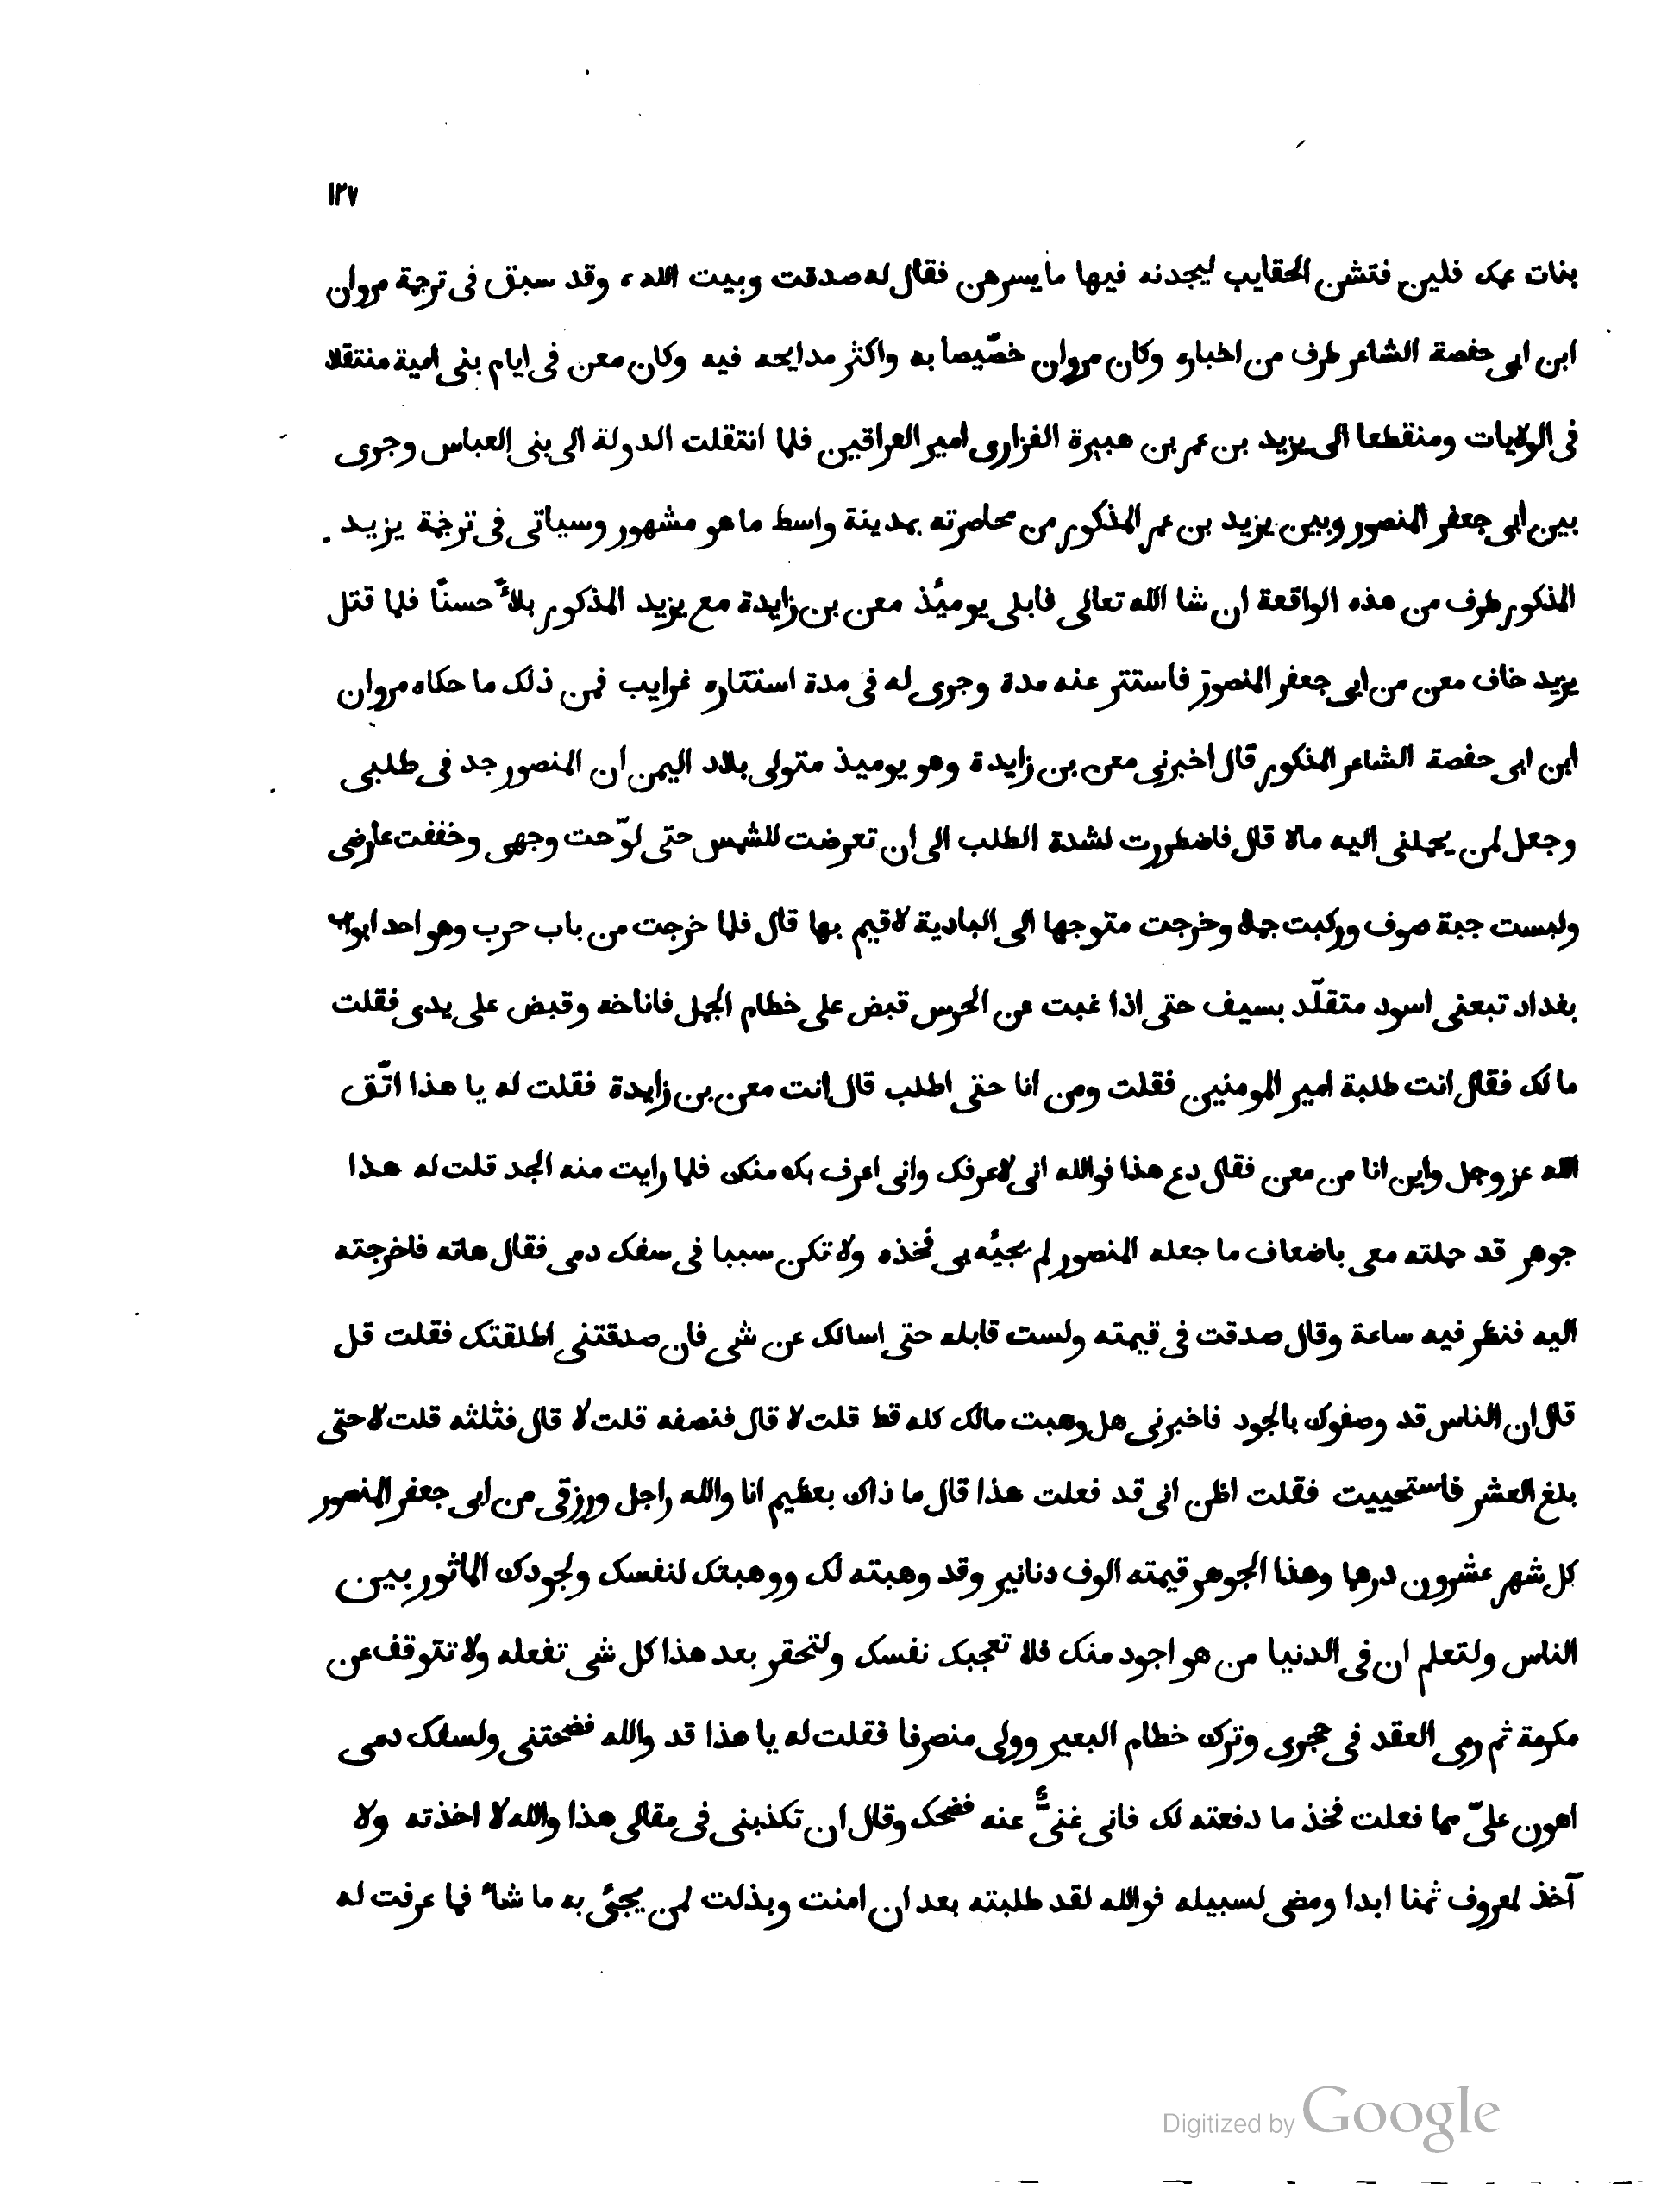 ١٢٧
بنات عمك فلين فتشن الحقايب ليجدنه فيها ما يسرهن فقال له صدقت وبيت الله، وقد سبق فى ترجمة مروان
ابن ابى حفصة الشاعر طرف من اخباره وكان مروان خصّيصا به واكثر مدايحه فيه وكان معن فى ايام بنى امية منتقلا
فى الولايات ومنقطعا الى يزيد بن عمر بن هبيرة الفزارى امير العراقين فلما انتقلت الدولة الى بنى العباس وجرى
بين ابى جعفر المنصور وبين يزيد بن عمر المذكور من محاصرته بمدينة واسط ما هو مشهور وسياتى فى ترجمة يزيد
المذكور طرف من هذه الواقعة ان شا الله تعالى فابلى يومئذ معن بن زايدة مع يزيد المذكور بلاً حسنًا فلما قتل
يزيد خاف معن من ابى جعفر المنصور فاستتر عنه مدة وجرى له فى مدة استتاره غرايب فمن ذلك ما حكاه مروان
ابن ابى حفصة الشاعر المذكور قال اخبرنى معن بن زايدة وهو يوميذ متولى بلاد اليمن ان المنصور جد فى طلبى
وجعل لمن يحملنى اليه مالا قال فاضطررت لشدة الطلب الى ان تعرضت للشمس حتى لوّحت وجهى وخففت عارضى
ولبست جبة صوف وركبت جملا وخرجت متوجها الى البادية لاقيم بها قال فلما خرجت من باب حرب وهو احد ابواب
بغداد تبعنى اسود متقلّد بسيف حتى اذا غبت عن الحرس قبض على خطام الجمل فاناخه وقبض على يدى فقلت
ما لك فقال انت طلبة امير المومنين فقلت ومن انا حتى اطلب قال انت معن بن زايدة فقلت له يا هذا اتّق
الله عز وجل واين انا من معن فقال دع هذا فوالله انى لاعرفك وانى اعرف بك منك فلما رايت منه الجد قلت له هذا
جوهر قد حملته معى باضعاف ما جعله المنصور لم يجئه بى فخذه ولا تكن سببا فى سفك دمى فقال هاته فاخرجته
اليه فنظر فيه ساعة وقال صدقت فى قيمته ولست قابله حتى اسالك عن شى فان صدقتنى اطلقتك فقلت قل
قال ان الناس قد وصفوك بالجود فاخبرنى هل وهبت مالك كله قط قلت لا قال فنصفه قلت لا قال فثلثه قلت لا حتى
بلغ العشر فاستحييت فقلت اظن انى قد فعلت هذا قال ما ذاك بعظيم انا والله راجل ورزقى من ابى جعفر المنصور
كل شهر عشرون درهما وهذا الجوهر قيمته الوف دنانير وقد وهبته لك ووهبتك لنفسك ولجودك الماثور بين
الناس ولتعلم ان فى الدنيا من هو اجود منك فلا تعجبك نفسك ولتحقر بعد هذا كل شى تفعله ولا تتوقف عن
مكرمة ثم رمى العقد فى حجرى وترك خطام البعير وولى منصرفا فقلت له يا هذا قد والله فضحتنى ولسفك دمى
اهون علىّ مما فعلت فخذ ما دفعته لك فانى غنىٌّ عنه فضحك وقال ان تكذبنى فى مقالى هذا والله لا اخذته ولا
آخذ لمعروف ثمنا ابدا ومضى لسبيله فوالله لقد طلبته بعد ان امنت وبذلت لمن يجىٔ به ما شاء فما عرفت له
Digitized by Google